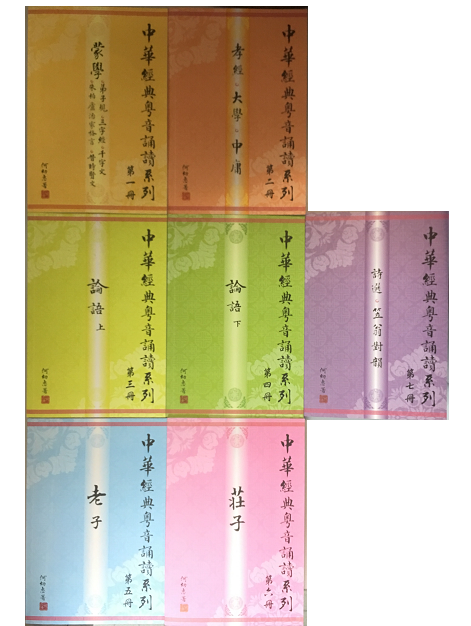 中華經典粵音誦讀系列
第一冊
蒙學
弟子規 三字經 千字文
朱柏廬治家格言 昔時賢文
中華經典粵音誦讀系列
第二冊
孝經 大學 中庸
中華經典粵音誦讀系列
第三冊
論語 上
中華經典粵音誦讀系列
第四冊
論語 下
中華經典粵音誦讀系列
第七冊
詩選 笠翁對韻
中華經典粵音誦讀系列
第五冊
老子
中華經典粵音誦讀系列
第六冊
莊子